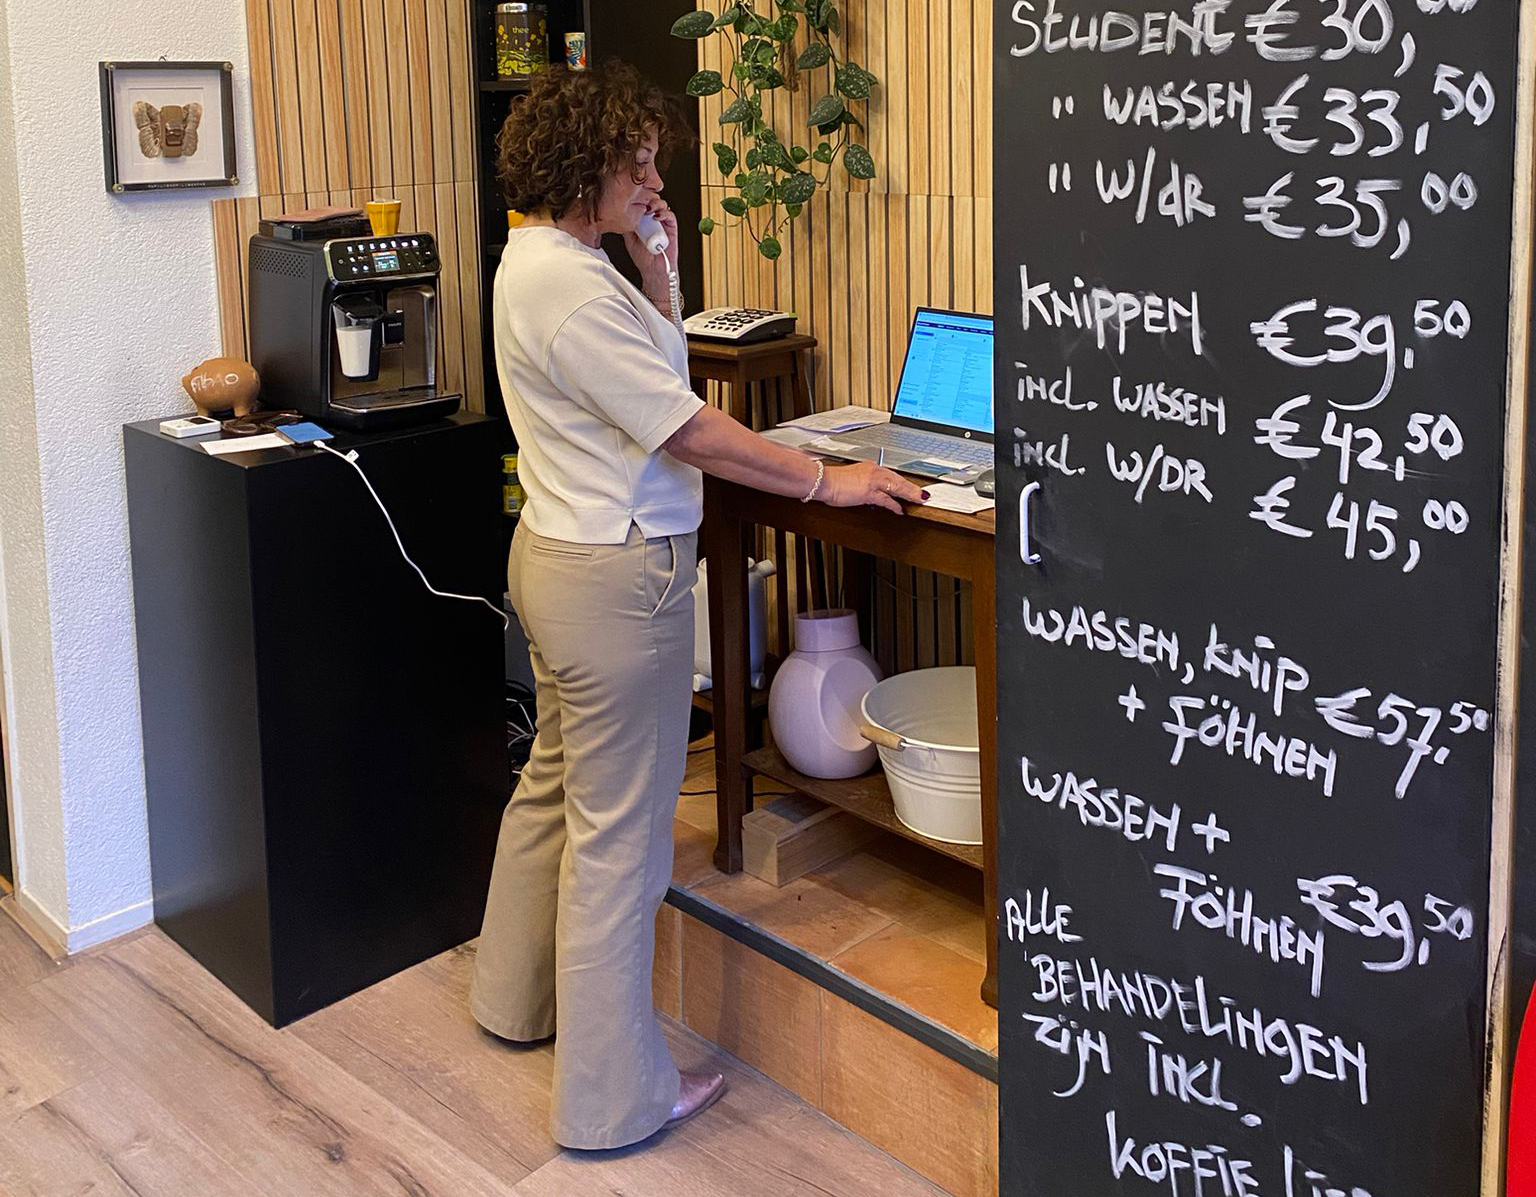 thee
FIBAO
STUDENT €30,00
" WASSEN €33,50
" W/dR €35,00
KNIPPEN €39,50
incl. WASSEN €42,50
incl. W/DR €45,00
WASSEN, KNIP
+ FÖHNEN €57,50
WASSEN +
FÖHNEN €39,50
ALLE
BEHANDELINGEN
ZIJN INCL.
KOFFIE